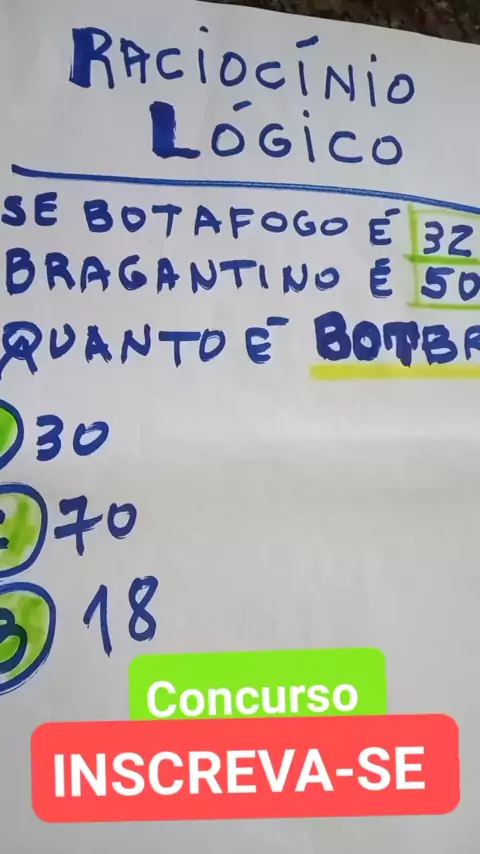 RACIOCÍNIO
LÓGICO
SE BOTAFOGO É 32
BRAGANTINO É 50
QUANTO É BOTBR
30
70
18
Concurso
INSCREVA-SE